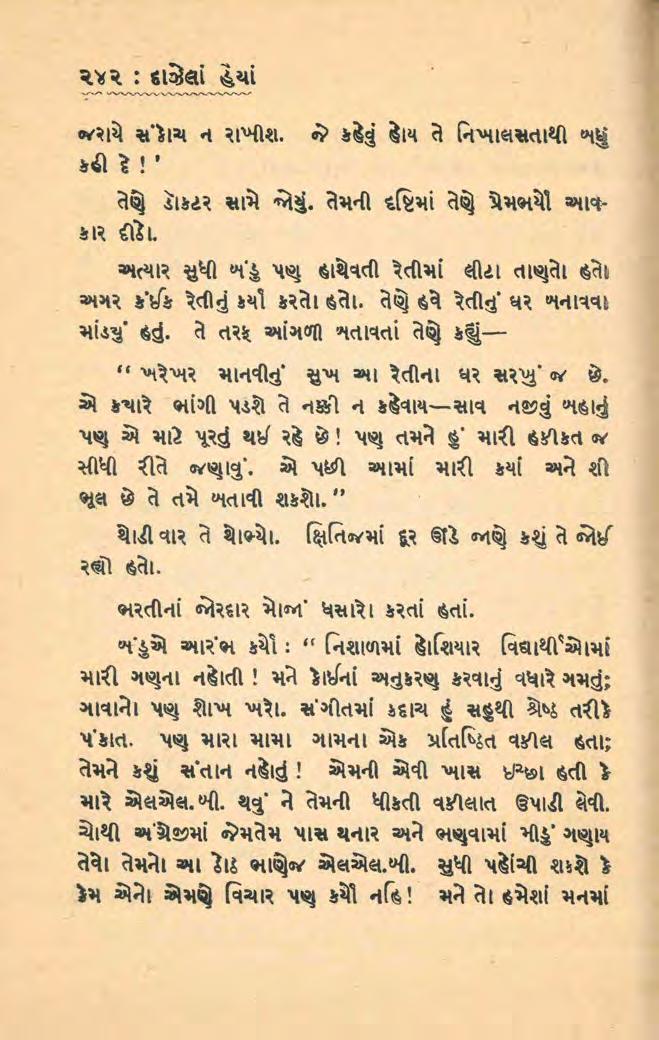 ૨૪૨ : દાઝેલાં હૈયાં
જરાયે સંકોચ ન રાખીશ. જે કહેવું હોય તે નિખાલસતાથી બધું
કહી દે !'
તેણે ડૉકટર સામે જોયું. તેમની દૃષ્ટિમાં તેણે પ્રેમભર્યો આવ-
કાર દીઠો.
અત્યાર સુધી બંડુ પણ હાથેવતી રેતીમાં લીટા તાણતો હતો
અગર કંઈક રેતીનું કર્યા કરતો હતો. તેણે હવે રેતીનું ઘર બનાવવા
માંડયું હતું. તે તરફ આંગળી બતાવતાં તેણે કહ્યું—
“ ખરેખર માનવીનું સુખ આ રેતીના ઘર સરખું જ છે.
એ ક્યારે ભાંગી પડશે તે નક્કી ન કહેવાય—સાવ નજીવું બહાનું
પણ એ માટે પૂરતું થઈ રહે છે! પણ તમને હું મારી હકીકત જ
સીધી રીતે જણાવું. એ પછી આમાં મારી કયાં અને શી
ભૂલ છે તે તમે બતાવી શકશો. ”
થોડી વાર તે થોભ્યો. ક્ષિતિજમાં દૂર ઊંડે જાણે કશું તે જોઈ
રહ્યો હતો.
ભરતીનાં જોરદાર મોજાં ધસારો કરતાં હતાં.
બંડુએ આરંભ કર્યો : “ નિશાળમાં હોશિયાર વિદ્યાર્થીઓમાં
મારી ગણના નહોતી ! મને કોઈનાં અનુકરણ કરવાનું વધારે ગમતું;
ગાવાનો પણ શોખ ખરો. સંગીતમાં કદાચ હું સહુથી શ્રેષ્ઠ તરીકે
પંકાત. પણ મારા મામા ગામના એક પ્રતિષ્ઠિત વકીલ હતા;
તેમને કશું સંતાન નહોતું ! એમની એવી ખાસ ઇચ્છા હતી કે
મારે એલએલ.બી. થવું ને તેમની ધીકતી વકીલાત ઉપાડી લેવી.
ચોથી અંગ્રેજીમાં જેમતેમ પાસ થનાર અને ભણવામાં મીડું ગણાય
તેવો તેમનો આ ઠોઠ ભાણેજ એલએલ.બી. સુધી પહોંચી શકશે કે
કેમ એનો એમણે વિચાર પણ કર્યો નહિ! મને તો હમેશાં મનમાં